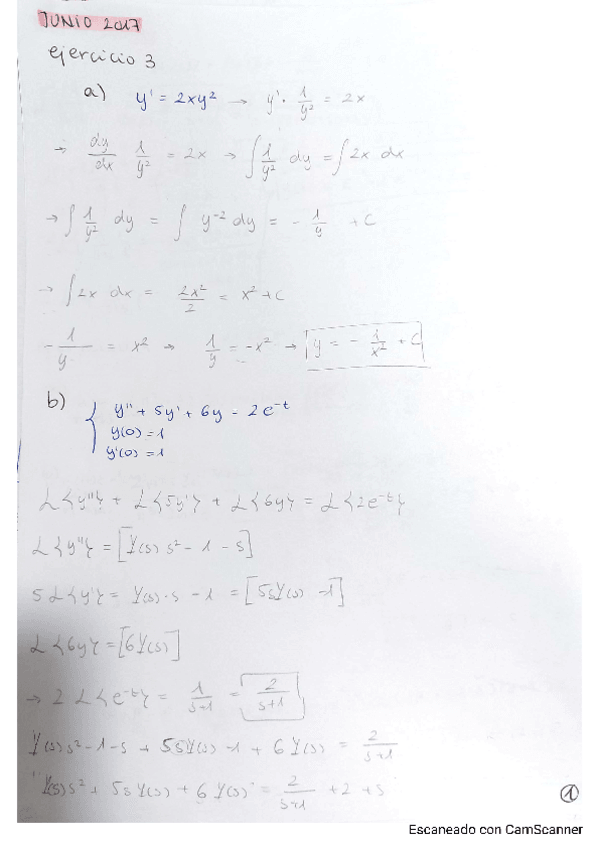 JUNIO 2017
ejercicio 3
a) y' = 2xy² → y' · 1/y² = 2x
→ dy/dx 1/y² = 2x → ∫ 1/y² dy = ∫ 2x dx
→ ∫ 1/y² dy = ∫ y⁻² dy = - 1/y + C
→ ∫ 2x dx = 2x²/2 = x² + C
- 1/y = x² → 1/y = -x² → y = - 1/x² + C
b)
{ y'' + 5y' + 6y = 2e⁻ᵗ
y(0) = 1
y'(0) = 1
L{y''} + L{5y'} + L{6y} = L{2e⁻ᵗ}
L{y''} = [Y(s) s² - 1 - s]
5 L{y'} = Y(s)·s - 1 = [5sY(s) - 1]
L{6y} = [6Y(s)]
→ 2 L{e⁻ᵗ} = 1/s+1 = 2/s+1
Y(s)s² - 1 - s + 5sY(s) - 1 + 6Y(s) = 2/s+1
Y(s)s² + 5sY(s) + 6Y(s) = 2/s+1 + 2 + s
1
Escaneado con CamScanner